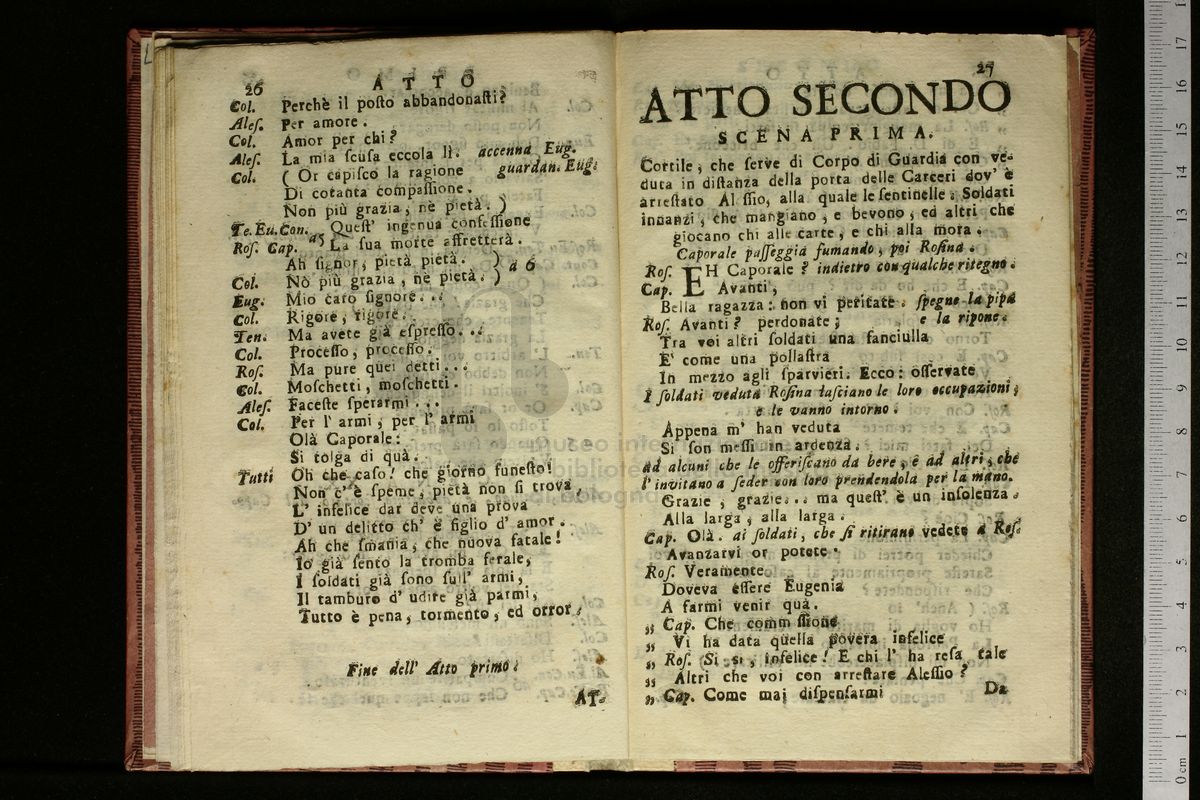 26
ATTO
Col. Perchè il poſto abbandonaſti?
Aleſ. Per amore.
Col. Amor per chi?
Aleſ. La mia ſcuſa eccola lì. accenna Eug.
Col. ( Or capiſco la ragione guardan. Eug.
Di cotanta compaſſione.
Non più grazia, nè pietà. )
Te. Eu. Con. Queſt' ingenua confeſſione
Roſ. Cap. a5 La ſua morte affretterà.
Ah ſignor, pietà pietà. ) a 6
Col. Nò più grazia, nè pietà. )
Eug. Mio caro ſignore...
Col. Rigore, rigore.
Ten. Ma avete già eſpreſſo...
Col. Proceſſo, proceſſo.
Roſ. Ma pure quei detti...
Col. Moſchetti, moſchetti.
Aleſ. Faceſte ſperarmi...
Col. Per l' armi, per l' armi
Olà Caporale:
Si tolga di quà.
Tutti Oh che caſo! che giorno funeſto!
Non c' è ſpeme, pietà non ſi trova,
L' infelice dar deve una prova
D' un delitto ch' è figlio d' amor.
Ah che ſmania, che nuova fatale!
Io già ſento la tromba ferale,
I ſoldati già ſono ſull' armi,
Il tamburo d' udire già parmi,
Tutto è pena, tormento, ed orror.
Fine dell' Atto primo.
AT-
27
ATTO SECONDO
SCENA PRIMA.
Cortile, che ſerve di Corpo di Guardia con ve-
duta in diſtanza della porta delle Carceri dov' è
arreſtato Al ſſio, alla quale le ſentinelle. Soldati
innanzi, che mangiano, e bevono, ed altri che
giocano chi alle carte, e chi alla mora.
Caporale paſſeggia fumando, poi Roſina.
Roſ. EH Caporale? indietro con qualche ritegno.
Cap. Avanti,
Bella ragazza: non vi peritate. ſpegne la pipa
Roſ. Avanti? perdonate; e la ripone.
Tra voi altri ſoldati una fanciulla
E' come una pollaſtra
In mezzo agli ſparvieri. Ecco: oſſervate
I ſoldati veduta Roſina laſciano le loro occupazioni,
e le vanno intorno.
Appena m' han veduta
Si ſon meſſi in ardenza.
Ad alcuni che le offeriſcano da bere, e ad altri, che
l' invitano a ſeder con loro prendendola per la mano.
Grazie, grazie... ma queſt' è un inſolenza.
Alla larga, alla larga.
Cap. Olà. ai ſoldati, che ſi ritirano vedete a Roſ.
Avanzarvi or potete.
Roſ. Veramente
Doveva eſſere Eugenia
A farmi venir quà.
„ Cap. Che comm ſſione
„ Vi ha data quella povera infelice
„ Roſ. Si si, infelice! E chi l' ha reſa tale
„ Altri che voi con arreſtare Aleſſio?
„ Cap. Come mai diſpenſarmi
Da